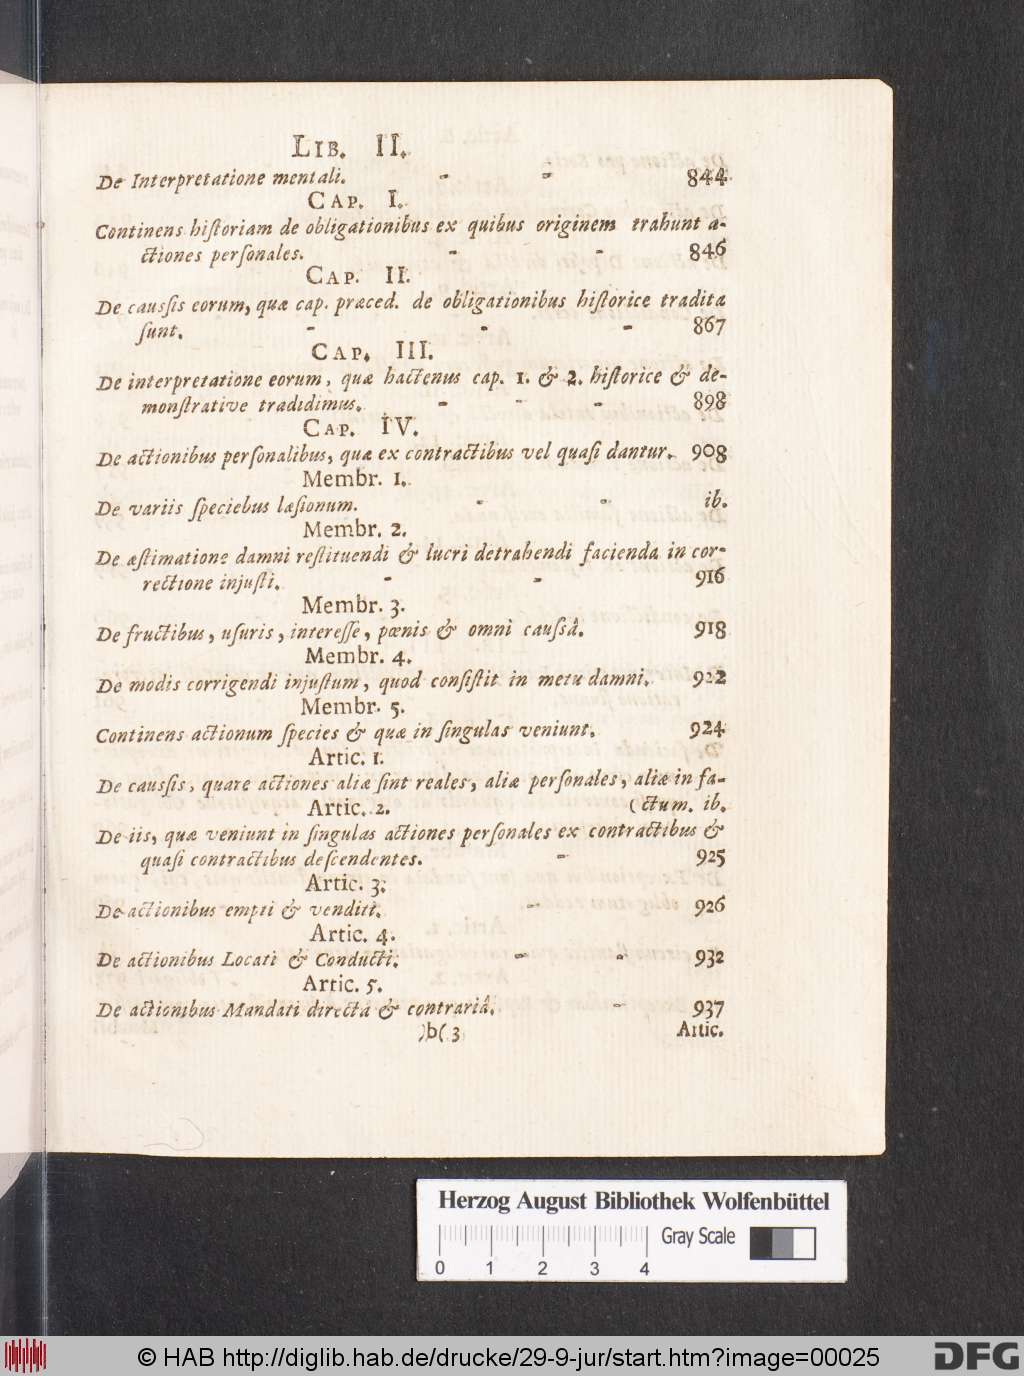 LIB. II.
De Interpretatione mentali. - - 844
CAP. I.
Continens historiam de obligationibus ex quibus originem trahunt a-
ctiones personales. - - 846
CAP. II.
De caussis eorum, quæ cap. præced. de obligationibus historice tradita
sunt. - - - 867
CAP. III.
De interpretatione eorum, quæ hactenus cap. 1. & 2. historice & de-
monstrative tradidimus. - - - 898
CAP. IV.
De actionibus personalibus, quæ ex contractibus vel quasi dantur. 908
Membr. 1.
De variis speciebus læsionum. - - ib.
Membr. 2.
De æstimatione damni restituendi & lucri detrahendi facienda in cor-
rectione injusti. - - 916
Membr. 3.
De fructibus, usuris, interesse, pœnis & omni caussâ. 918
Membr. 4.
De modis corrigendi injustum, quod consistit in metu damni. 922
Membr. 5.
Continens actionum species & quæ in singulas veniunt. 924
Artic. 1.
De caussis, quare actiones aliæ sint reales, aliæ personales, aliæ in fa-
Artic. 2. (ctum. ib.
De iis, quæ veniunt in singulas actiones personales ex contractibus &
quasi contractibus descendentes. - 925
Artic. 3.
De actionibus empti & venditi. - 926
Artic. 4.
De actionibus Locati & Conducti. - - 932
Artic. 5.
De actionibus Mandati directâ & contrariâ. - 937
)b( 3 Artic.
Herzog August Bibliothek Wolfenbüttel
Gray Scale
0 1 2 3 4
© HAB http://diglib.hab.de/drucke/29-9-jur/start.htm?image=00025
DFG